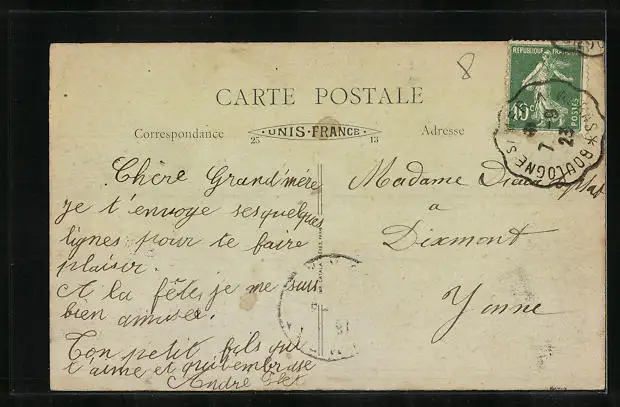 8
CARTE POSTALE
Correspondance
25 UNIS-FRANCE 13
Adresse
REPUBLIQUE FRANÇAISE
15c POSTES
BOULOGNE S
7 - 9
23
Chère Grand'mère
je t'envoye ses quelques
lignes pour te faire
plaisir.
A la fête je me suis
bien amuser.
Ton petit fils qui
t'aime et qui t'embrasse
André
Madame
a
Dixmont
Yonne